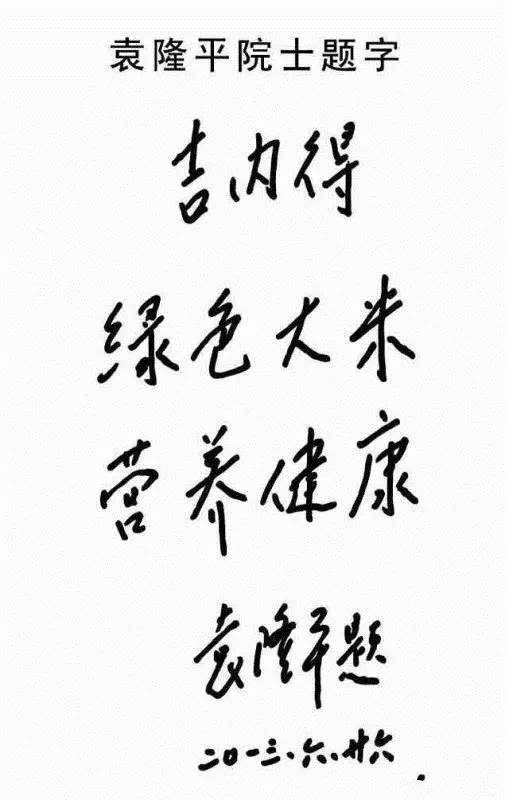 袁隆平院士题字
吉内得
绿色大米
营养健康
袁隆平题
二〇一三、六、廿六